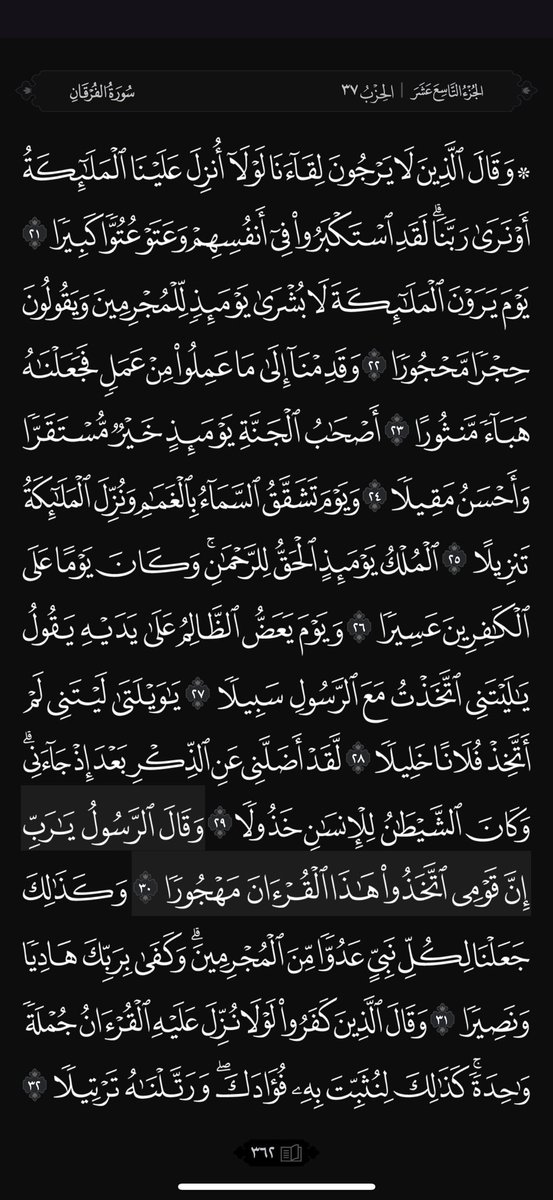 الجُزْءُ التَّاسِعَ عَشَرَ | الحِزْبُ ٣٧ سُورَةُ الفُرْقَانِ
۞ وَقَالَ ٱلَّذِينَ لَا يَرْجُونَ لِقَآءَنَا لَوْلَآ أُنزِلَ عَلَيْنَا ٱلْمَلَـٰٓئِكَةُ
أَوْ نَرَىٰ رَبَّنَاۗ لَقَدِ ٱسْتَكْبَرُوا۟ فِىٓ أَنفُسِهِمْ وَعَتَوْ عُتُوًّا كَبِيرًا ٢١
يَوْمَ يَرَوْنَ ٱلْمَلَـٰٓئِكَةَ لَا بُشْرَىٰ يَوْمَئِذٍ لِّلْمُجْرِمِينَ وَيَقُولُونَ
حِجْرًا مَّحْجُورًا ٢٢ وَقَدِمْنَآ إِلَىٰ مَا عَمِلُوا۟ مِنْ عَمَلٍ فَجَعَلْنَـٰهُ
هَبَآءً مَّنثُورًا ٢٣ أَصْحَـٰبُ ٱلْجَنَّةِ يَوْمَئِذٍ خَيْرٌ مُّسْتَقَرًّا
وَأَحْسَنُ مَقِيلًا ٢٤ وَيَوْمَ تَشَقَّقُ ٱلسَّمَآءُ بِٱلْغَمَـٰمِ وَنُزِّلَ ٱلْمَلَـٰٓئِكَةُ
تَنزِيلًا ٢٥ ٱلْمُلْكُ يَوْمَئِذٍ ٱلْحَقُّ لِلرَّحْمَـٰنِۚ وَكَانَ يَوْمًا عَلَى
ٱلْكَـٰفِرِينَ عَسِيرًا ٢٦ وَيَوْمَ يَعَضُّ ٱلظَّالِمُ عَلَىٰ يَدَيْهِ يَقُولُ
يَـٰلَيْتَنِى ٱتَّخَذْتُ مَعَ ٱلرَّسُولِ سَبِيلًا ٢٧ يَـٰوَيْلَتَىٰ لَيْتَنِى لَمْ
أَتَّخِذْ فُلَانًا خَلِيلًا ٢٨ لَّقَدْ أَضَلَّنِى عَنِ ٱلذِّكْرِ بَعْدَ إِذْ جَآءَنِىۗ
وَكَانَ ٱلشَّيْطَـٰنُ لِلْإِنسَـٰنِ خَذُولًا ٢٩ وَقَالَ ٱلرَّسُولُ يَـٰرَبِّ
إِنَّ قَوْمِى ٱتَّخَذُوا۟ هَـٰذَا ٱلْقُرْءَانَ مَهْجُورًا ٣٠ وَكَذَٰلِكَ
جَعَلْنَا لِكُلِّ نَبِىٍّ عَدُوًّا مِّنَ ٱلْمُجْرِمِينَۗ وَكَفَىٰ بِرَبِّكَ هَادِيًا
وَنَصِيرًا ٣١ وَقَالَ ٱلَّذِينَ كَفَرُوا۟ لَوْلَا نُزِّلَ عَلَيْهِ ٱلْقُرْءَانُ جُمْلَةً
وَٰحِدَةًۚ كَذَٰلِكَ لِنُثَبِّتَ بِهِۦ فُؤَادَكَۖ وَرَتَّلْنَـٰهُ تَرْتِيلًا ٣٢
٣٦٢